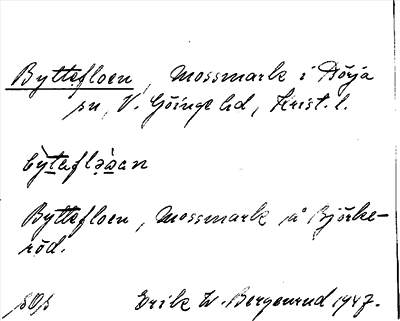 Byttefloen, Mossmark i Rörja
sn, V. Göinge hd, Krist. l.
Byttefloen, Mossmark på Björke-
röd.
Erik W. Bergenrud 1947.